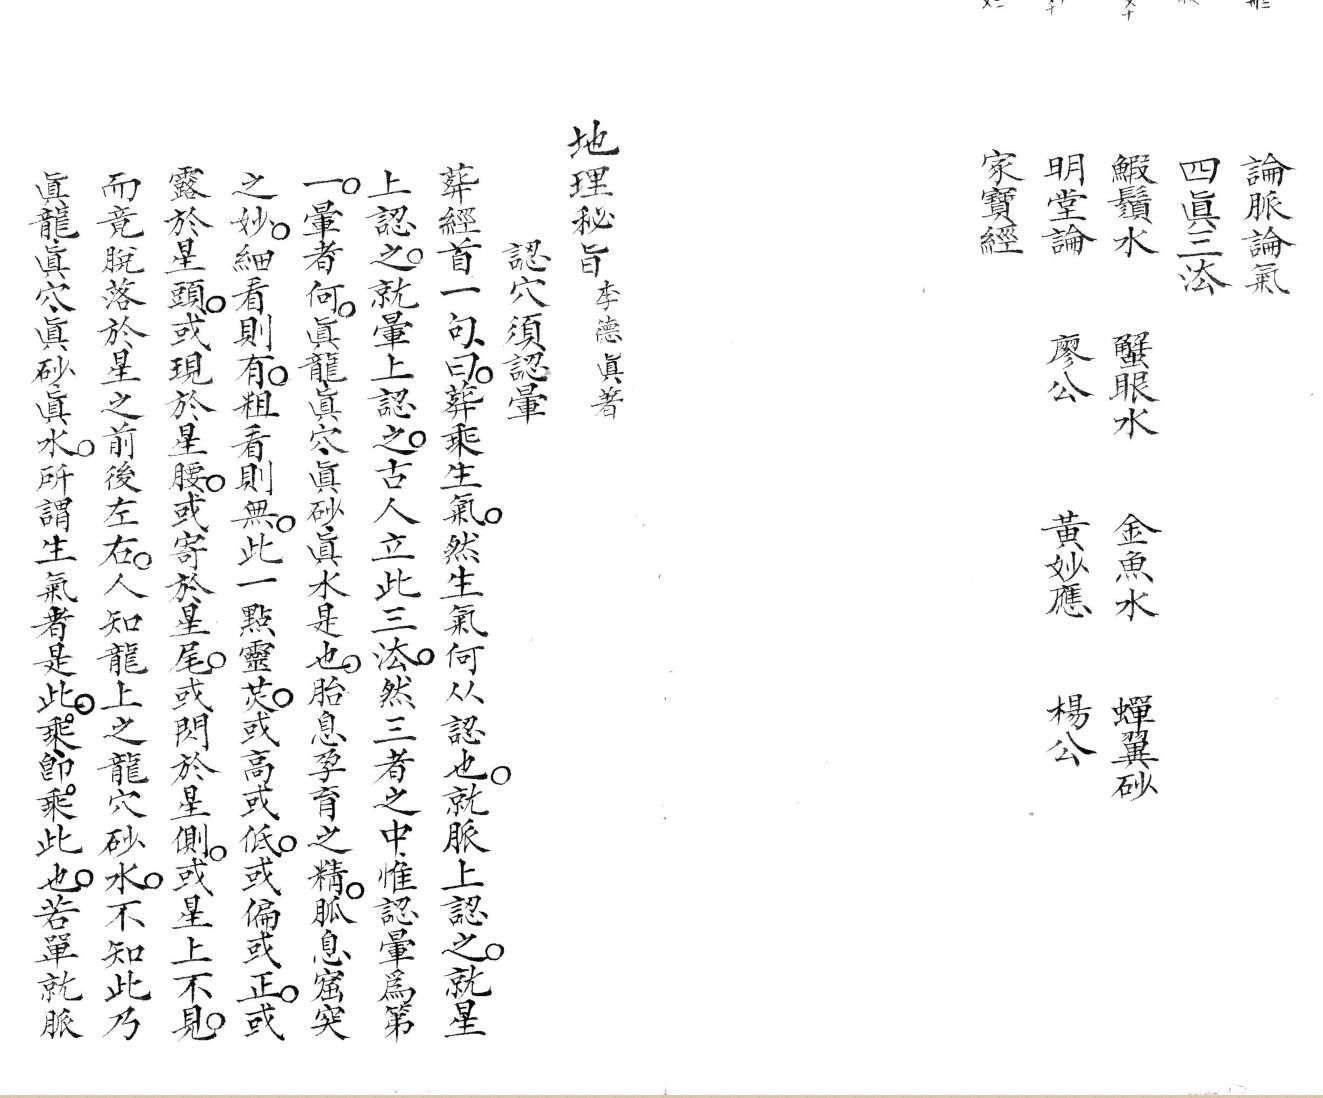 論脈論氣
四眞三法
鰕鬚水　蟹眼水　金魚水　蟬翼砂
明堂論　廖公　黃妙應　楊公
家寶經
地理秘旨 李德眞著
認穴須認暈
葬經首一句曰葬乘生氣然生氣何从認也就脈上認之就星
上認之就暈上認之古人立此三法然三者之中惟認暈爲第
一暈者何眞龍眞穴眞砂眞水是也胎息孕育之精胍息窟突
之妙細看則有粗看則無此一點靈茓或高或低或偏或正或
露於星頭或現於星腰或寄於星尾或閃於星側或星上不見
而竟脫落於星之前後左右人知龍上之龍穴砂水不知此乃
眞龍眞穴眞砂眞水所謂生氣者是此乘卽乘此也若單就脈